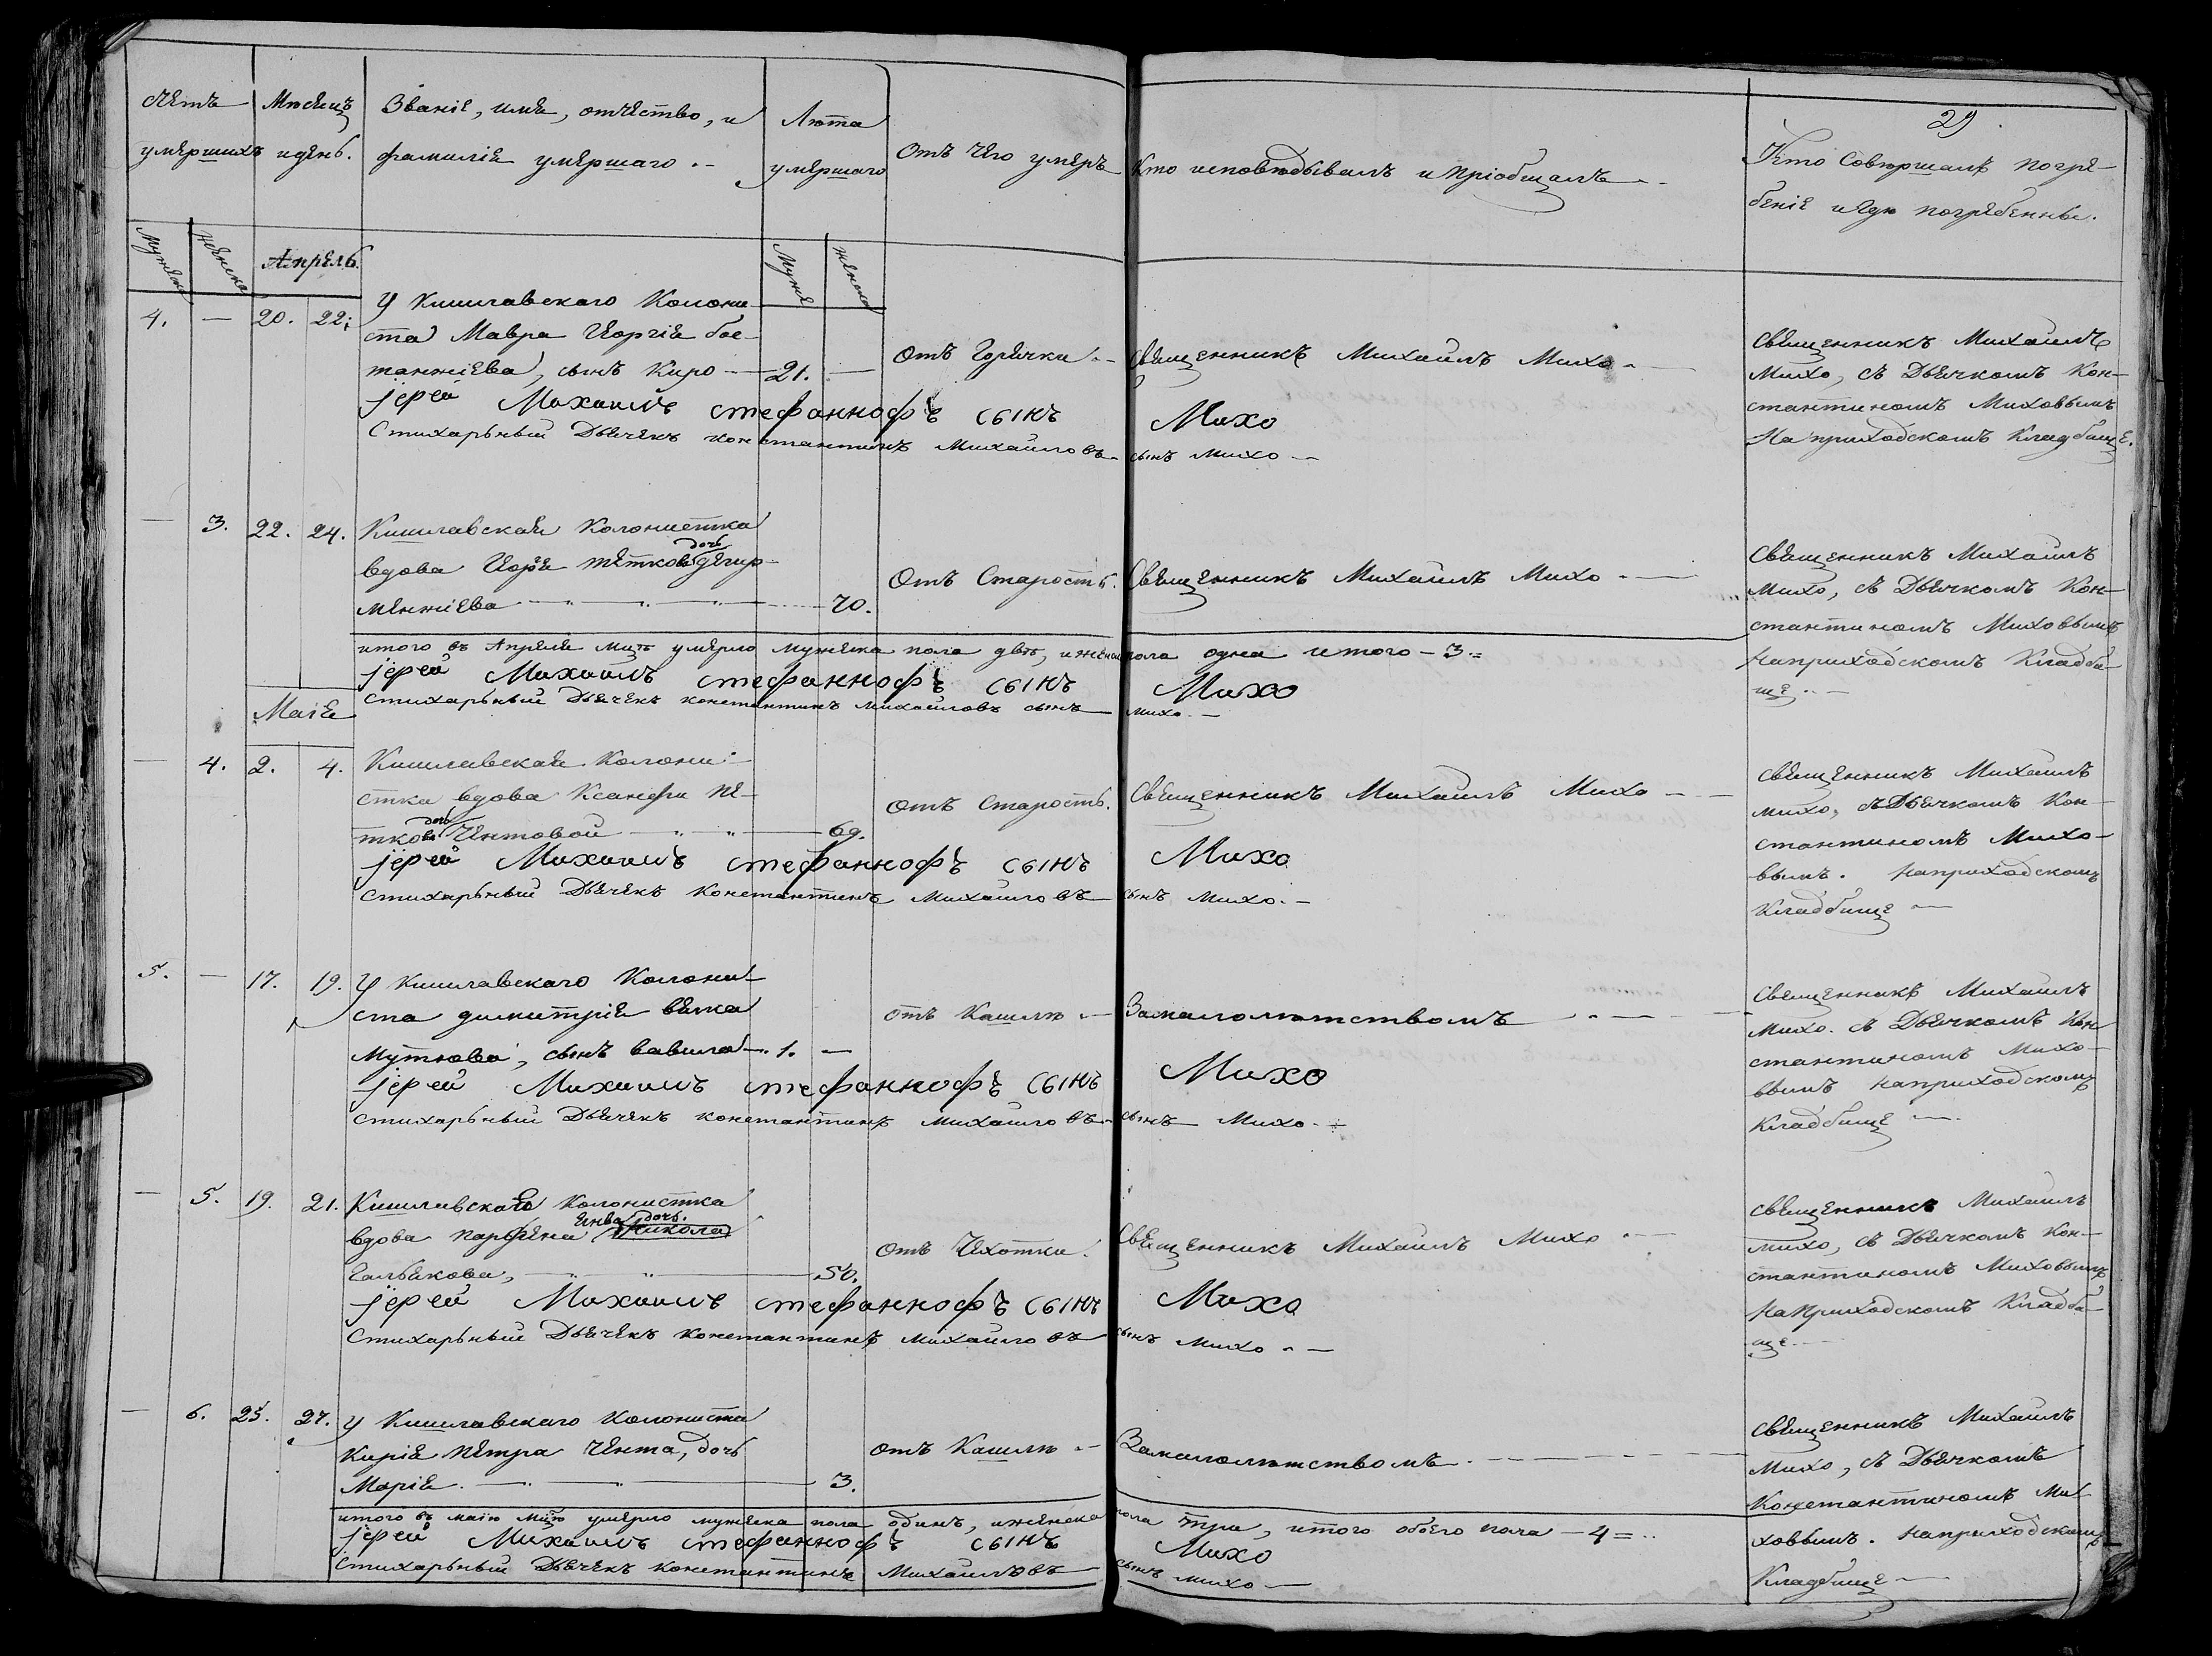 29.
Счетъ умершихъ
Мѣсецъ идень.
Званіе, имя, отчество, и
фамиліе умершаго.
Лѣта
умершаго
Отъ чего умеръ
Кто исповѣдывалъ и пріобщалъ
Кто совершалъ погре-
беніе игдѣ погребенны.
Мужеска
женска
Апрель.
Мужеска
женска
4. — 20. 22.
У Кишлавскаго Колони-
ста Мавра Иоргіе бос-
танжіева, сынъ Киро — 21. —
Отъ Горячки.
Священникъ Михаилъ Михо
Священникъ Михаилъ
Михо, съ Дьячкомъ Кон-
стантиномъ Миховымъ
На приходскомъ Кладбище.
јерей Михаилъ стефанноФъ сынъ Михо
Стихарьный Дьячекъ константинъ Михайловъ сынъ Михо
— 3. 22. 24.
Кишлавская Колонистка
вдова Иорге петкова дочь дегир-
менжіева — 70.
Отъ Старость.
Священникъ Михаилъ Михо
Священникъ Михаилъ
Михо, съ Дьячкомъ Кон-
стантиномъ Миховымъ
Наприходскомъ Кладби-
ще
итого въ Апреле мцѣ умерло мужеска пола двѣ, иженска пола одна итого — 3
јерей Михаилъ стефанноФъ сынъ Михо
Стихарьный Дьячекъ константинъ Михайловъ сынъ Михо
Маіе
— 4. 2. 4.
Кишлавская Колони-
стка вдова Ксанфи пе-
ткова дочь Чентовой — 69.
Отъ Старость.
Священникъ Михаилъ Михо
Священникъ Михаилъ
Михо, съДьячкомъ Кон-
стантиномъ Михо-
вымъ. Наприходскомъ
Кладбище
јерей Михаилъ стефанноФъ сынъ Михо
Стихарьный Дьячекъ Константинъ Михайловъ сынъ Михо
5. — 17. 19.
У Кишлавскаго Колони-
ста димитріе вяка
мутнова, сынъ вавила — 1. —
отъ Кашлю
Замалолѣтствомъ
Священникъ Михаилъ
Михо. съ Дьячкомъ Кон
стантиномъ Михо-
вымъ наприходскомъ
Кладбище
јерей Михаилъ стефанноФъ сынъ Михо
Стихарьный Дьячекъ константинъ Михайловъ сынъ Михо
— 5. 19. 21.
Кишлавская Колонистка
вдова парфени дочь. Никола
Галбакова, — 50.
Отъ Чехотки.
Священникъ Михаилъ Михо
Священникъ Михаилъ
Михо, съ Дьячкомъ Кон-
стантиномъ Миховымъ
Наприходскомъ Кладби-
ще
јерей Михаилъ стефанноФъ сынъ Михо
Стихарьный Дьячекъ константинъ Михайловъ сынъ Михо
— 6. 25. 27.
У Кишлавскаго Колониста
Киріе Петра Чента, дочь
Маріе — 3.
отъ Кашлю
Замалолѣтствомъ
Священникъ Михаилъ
Михо, съ Дьячкомъ
Константиномъ Ми-
ховымъ. Наприходскомъ
Кладбище
итого въ маію мцѣю умерло мужеска пола одинъ, иженска пола три, итого обоего пола — 4
јерей Михаилъ стефанноФъ сынъ Михо
Стихарьный Дьячекъ константинъ Михайловъ сынъ Михо